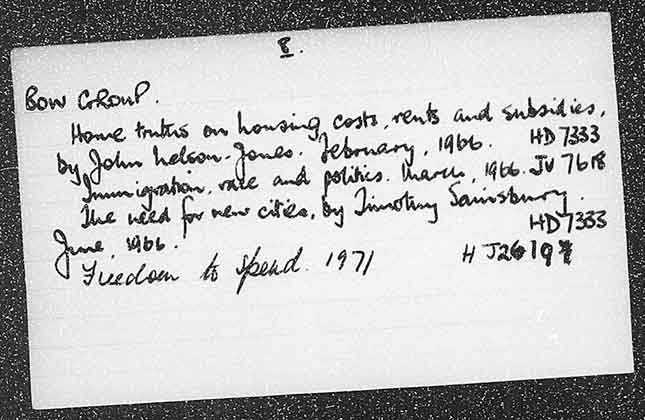 8.
BOW GROUP.
Home truths on housing costs, rents and subsidies,
by John Nelson-Jones. February, 1966. HD7333
Immigration, race and politics. March, 1966. JV 7618
The need for new cities, by Timothy Sainsbury.
June, 1966. HD7333
Freedom to spend. 1971 HJ2619